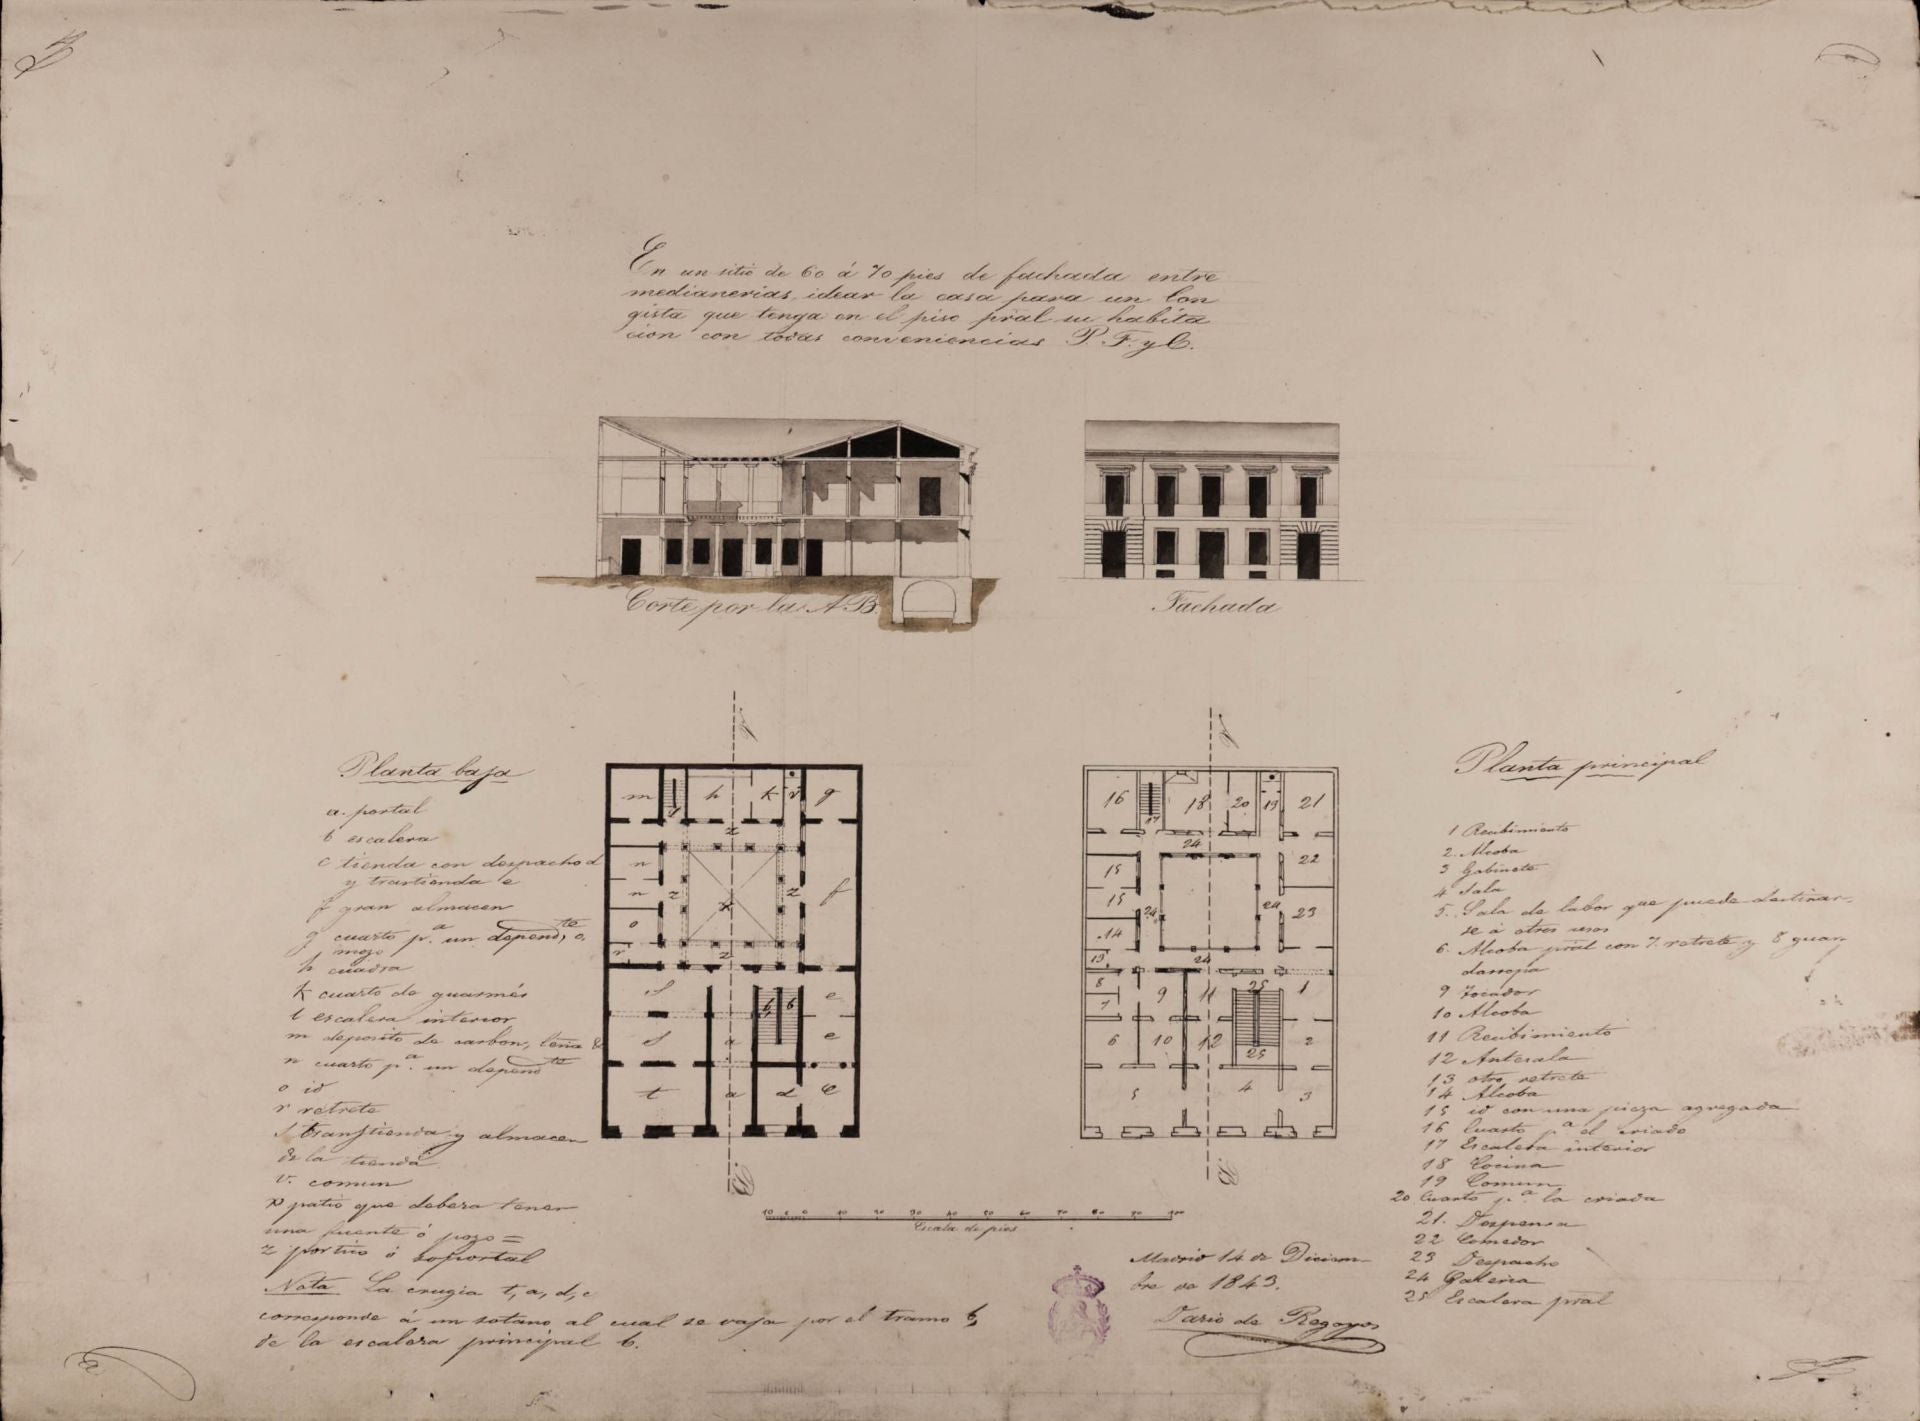 En un sitio de 60 á 70 pies de fachada entre
medianerias, idear la casa para un Lon
gista que tenga en el piso pral su habita
cion con todas conveniencias P. F. y C.
Corte por la A B.
Fachada
Planta baja
a. portal
b escalera
c tienda con despacho d
y trastienda e
f gran almacen
g cuarto p.a un depend.te ó
mozo
h cuadra
k cuarto de guarnés
l escalera interior
m deposito de carbon, leña &
n cuarto p.a un depend.te
o id
r retrete
s transtienda y almacen
de la tienda
v. comun
x patio que debera tener
una fuente ó pozo =
z portico ó soportal
Nota La crugia t, a, d, c
corresponde á un sotano al cual se vaja por el tramo b,
de la escalera principal b.
A
m
h
k
v
g
z
n
n
z
x
z
f
o
r
z
s
e
s
a
e
t
a
d
c
B.
A
16
17
18
20
19
21
24
15
22
15
24
24
23
14
13
24
8
9
11
25
1
7
6
10
12
25
2
5
4
3
B.
10 5 0 10 20 30 40 50 60 70 80 90 100
Escala de pies
Madrid 14 de Diciem-
bre de 1843.
Dario de Regoyos
Planta principal
1 Recibimiento
2. Alcoba
3 Gabinete
4 Sala
5. Sala de labor que puede destinar-
se á otros usos
6. Alcoba pral con 7. retrete y 8 guar
darropa
9 Tocador
10 Alcoba
11 Recibimiento
12 Antesala
13 otro retrete
14 Alcoba
15 id con una pieza agregada
16 Cuarto p.a el criado
17 Escalera interior
18 Cocina
19 Comun
20. Cuarto p.a la criada
21. Despensa
22 Comedor
23 Despacho
24 Galeria
25 Escalera pral